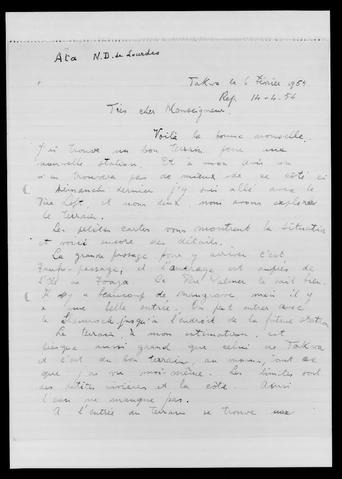 Ata N.D. de Lourdes
Takwa le 6 Février 1954
Rep. 14-4-54
Très cher Monseigneur,
Voilà la bonne nouvelle
J'ai trouvé un bon terrain pour une
nouvelle station. Et à mon avis on
n'en trouvera pas de mieux de ce côté ci
Dimanche dernier j'y suis allé avec le
Père Loft, et nous deux, nous avons exploré
le terrain.
Les petites cartes vous montrent la situation
et voici encore des détails.
La grande passage pour y arriver c'est
passage, et l'ancrage est auprès de
l'île de Le Père Valmer le sait bien.
Il y a beaucoup de mangrove mais il y
a une belle entrée. On peut entrer avec
le Shamrock jusqu'à l'endroit de la future station
Le terrain, à mon estimation, est
presque aussi grand que celui de Takwa
et c'est du bon terrain, au moins, tout ce
que j'ai vu moi-même. Les limites sont
des petites rivières et la côte. Aussi
l'eau ne manque pas.
A l'entrée du terrain se trouve une